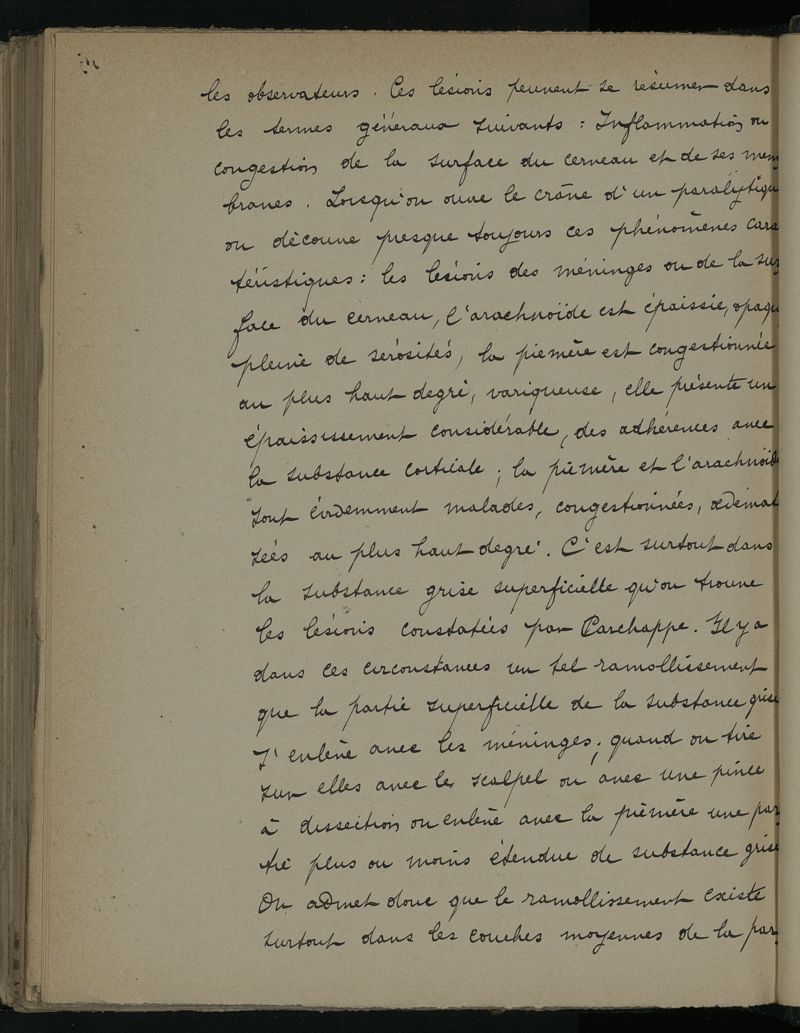 les observateurs. Ces lésions peuvent se résumer dans
les termes généraux suivants : Inflammation ou
congestion de la surface du cerveau et de ses mem
branes. Lorsqu'on ouvre le crâne d'un paralytiqu
on découvre presque toujours ces phénomènes cara
téristiques : les lésions des méninges ou de la sur
face du cerveau, l'arachnoïde est épaissie, opaqu
pleine de sérosités, la piemère est congestionnée
au plus haut degré, variqueuse, elle présente un
épaississement considérable, des adhérences avec
la substance corticale ; la piemère et l'arachnoïd
sont évidemment malades, congestionnées, œdémat
siés au plus haut degré. C'est surtout dans
la substance grise superficielle qu'on trouve
les lésions constatées par Parchappe. Il y a
dans ces circonstances un tel ramollissement
que la partie superficielle de la substance grise
s'enlève avec les méninges ; quand on tire
sur elles avec le scalpel ou avec une pince
à dissection on enlève avec la piemère une par
tie plus ou moins étendue de substance grise
On admet donc que le ramollissement existe
surtout dans les couches moyennes de la par